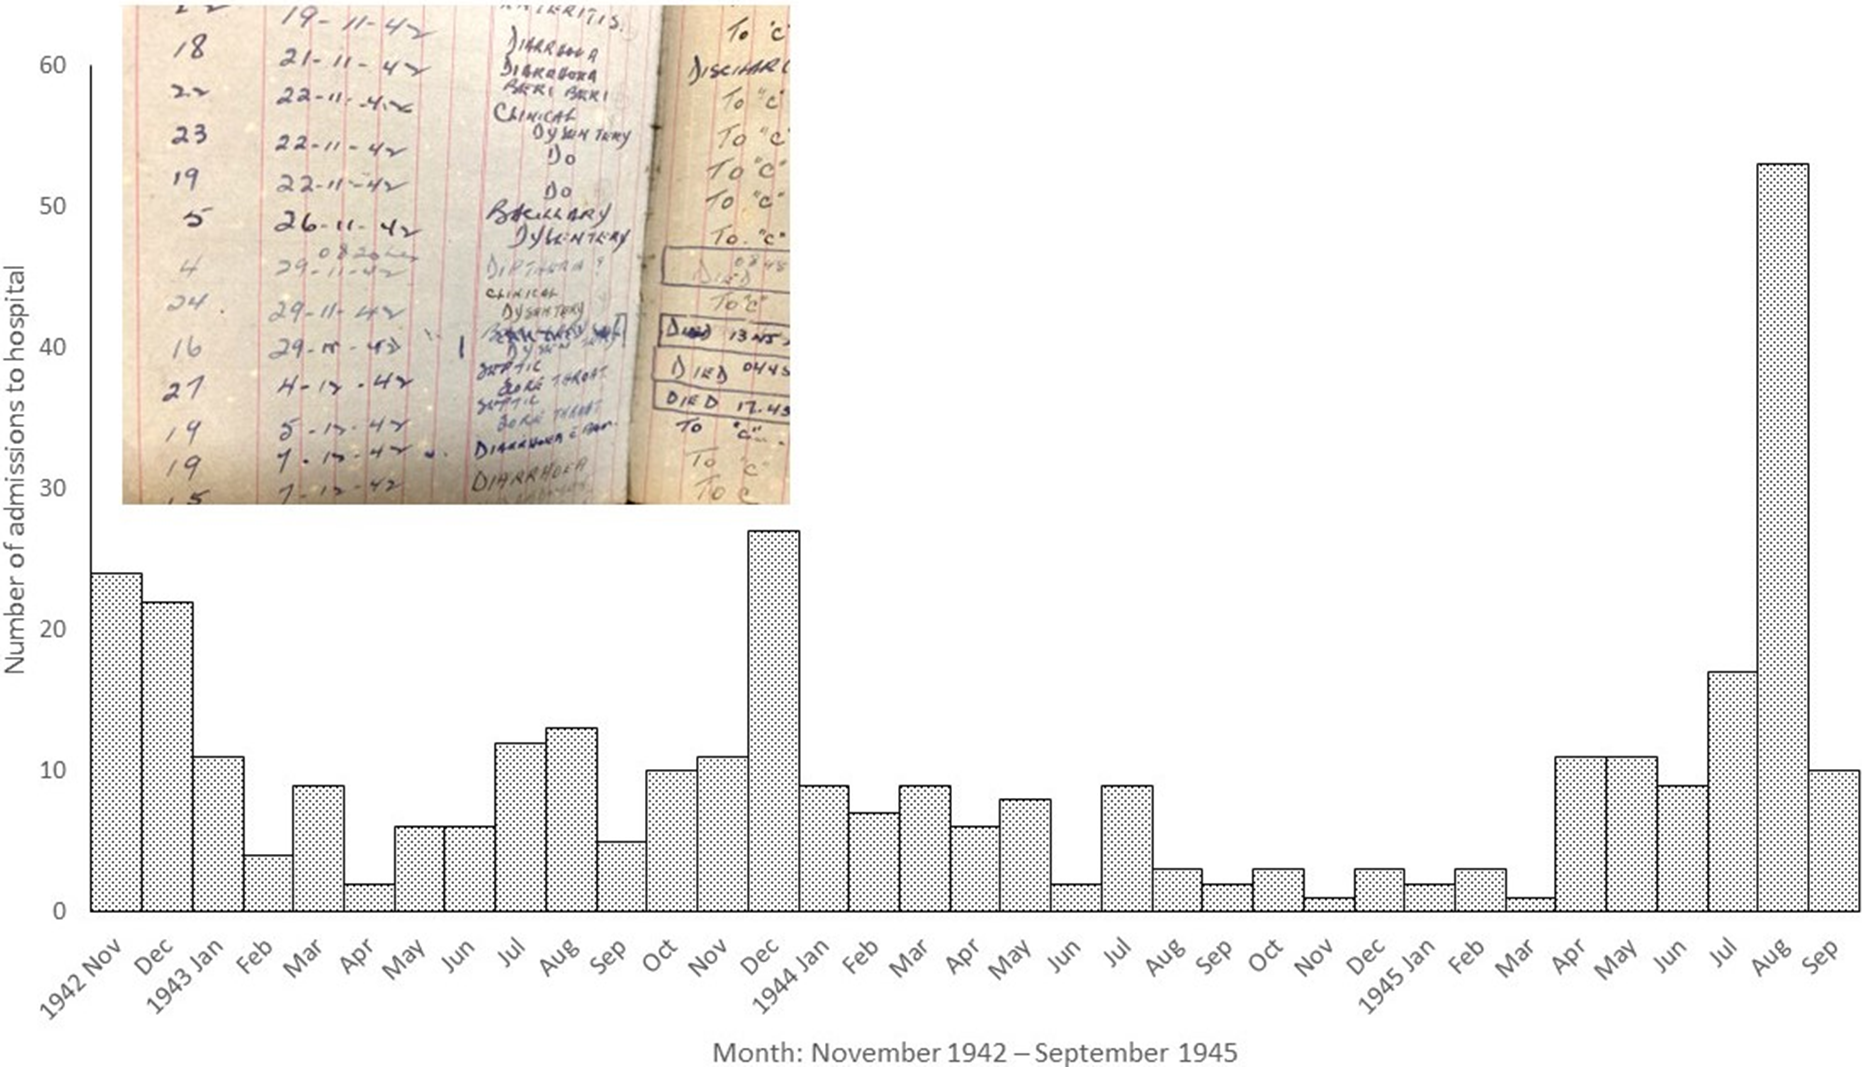 19-11-42 To "C"
18 21-11-42 DIARRHOEA DISCHAR
22 22-11-42 DIARRHOEA To "C"
BERI BERI
23 22-11-42 CLINICAL To "C"
DYSENTERY
19 22-11-42 Do To "C"
5 26-11-42 Do To "C"
BACILLARY
DYSENTERY To "C"
4 29-11-42 DIPTHERIA ? DIED
24 29-11-42 CLINICAL To "C"
DYSENTERY
16 DIED
27 4-12-42 SEPTIC DIED
SORE THROAT
19 5-12-42 SEPTIC DIED 17.45
SORE THROAT
19 7-12-42 DIARRHOEA To "C"
15 7-12-42 DIARRHOEA To "C"
To C
Number of admissions to hospital
60
50
40
30
20
10
0
1942 Nov Dec 1943 Jan Feb Mar Apr May Jun Jul Aug Sep Oct Nov Dec 1944 Jan Feb Mar Apr May Jun Jul Aug Sep Oct Nov Dec 1945 Jan Feb Mar Apr May Jun Jul Aug Sep
Month: November 1942 – September 1945